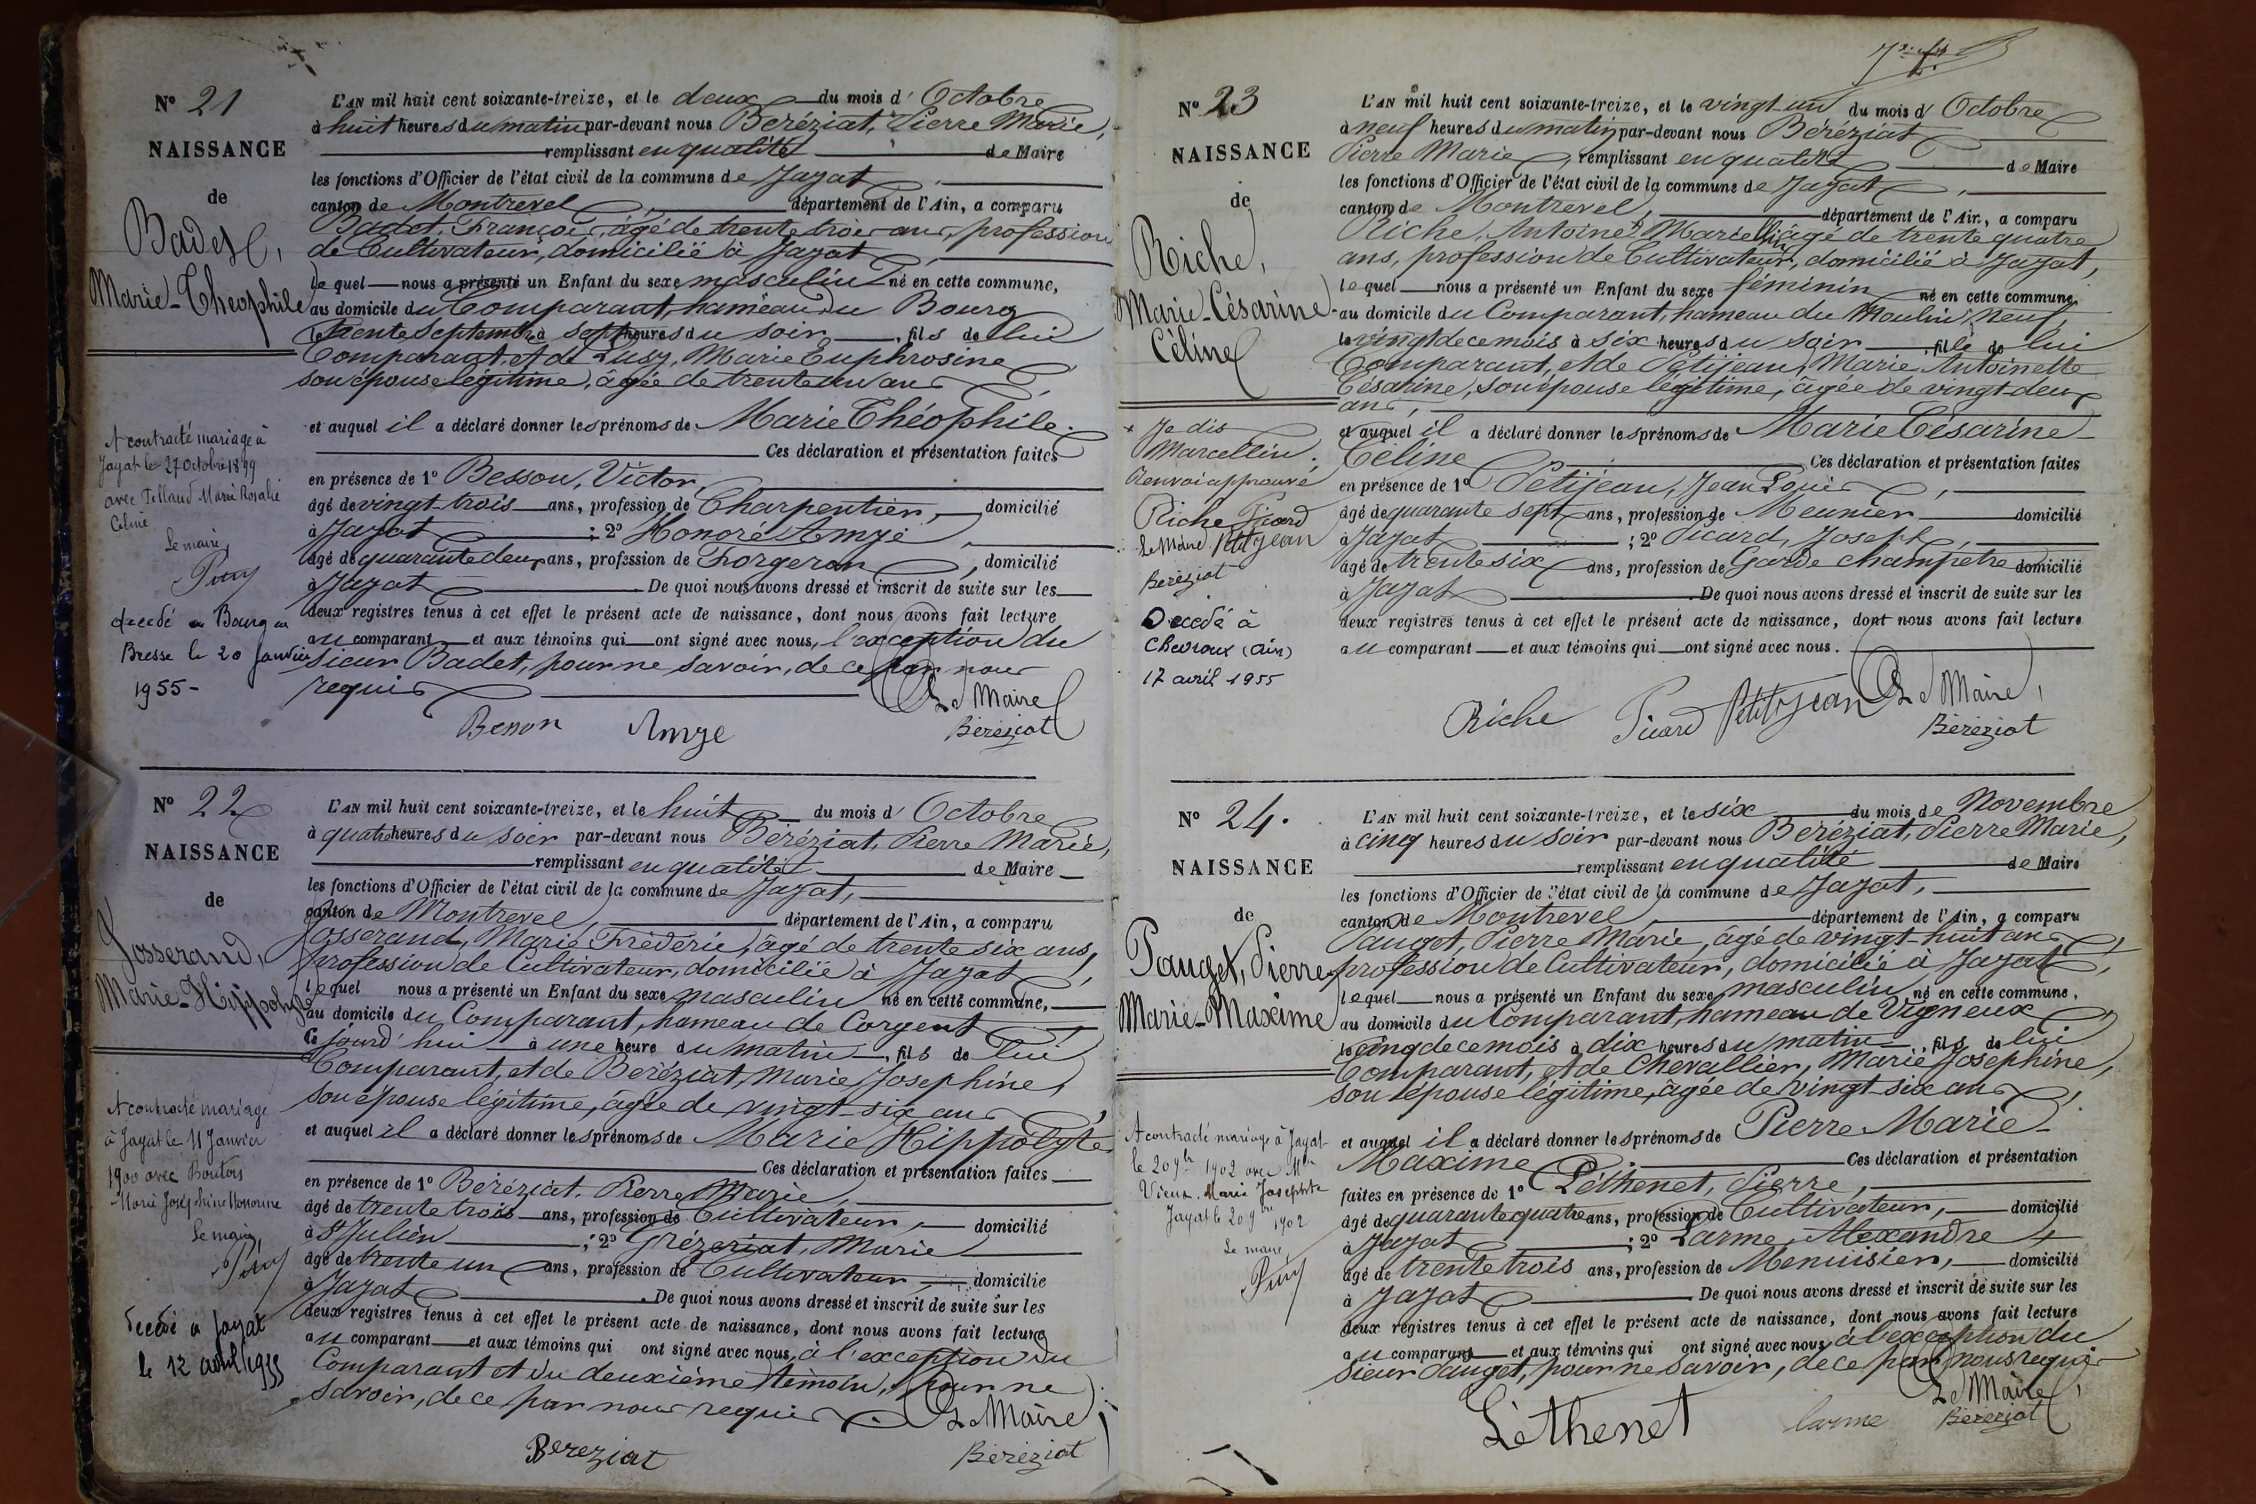 N° 21
NAISSANCE
de
Badet,
Marie-Théophile
A contracté mariage à
Jayat le 27 octobre 1899
avec Pelland Marie Rosalie
Céline
Le maire,
Piny
décédé à Bourg en
Bresse le 20 Janvier
1955-
L'AN mil huit cent soixante-treize, et le deux du mois d'Octobre
à huit heures du matin par-devant nous Beréziat, Pierre Marie,
remplissant en qualité de Maire
les fonctions d'Officier de l'état civil de la commune de Jayat,
canton de Montrevel, département de l'Ain, a comparu
Badet, François, âgé de trente trois ans, profession
de Cultivateur, domicilié à Jayat,
lequel nous a présenté un Enfant du sexe masculin né en cette commune,
au domicile du Comparant, hameau du Bourg
le trente Septembre à sept heures du soir, fils de lui
Comparant, et de Lusy, Marie Euphrosine
son épouse légitime, âgée de trente un ans,
et auquel il a déclaré donner les prénoms de Marie Théophile.
Ces déclaration et présentation faites
en présence de 1° Besson, Victor,
âgé de vingt-trois ans, profession de Charpentier, domicilié
à Jayat ; 2° Honoré Amyé,
âgé de quarante deux ans, profession de Forgeron, domicilié
à Jayat. De quoi nous avons dressé et inscrit de suite sur les
deux registres tenus à cet effet le présent acte de naissance, dont nous avons fait lecture
au comparant et aux témoins qui ont signé avec nous, l'exception du
sieur Badet, pour ne savoir, de ce par nous
requis
Le Maire
Beson Amye Béréziat
N° 22
NAISSANCE
de
Josserand,
Marie-Hippolyte
A contracté mariage
à Jayat le 11 Janvier
1900 avec Boutors
Marie Joséphine Honorine
Le maire,
Piny
Décédé à Jayat
le 12 avril 1955
L'AN mil huit cent soixante-treize, et le huit du mois d'Octobre
à quatre heures du soir par-devant nous Beréziat, Pierre Marie,
remplissant en qualité de Maire
les fonctions d'Officier de l'état civil de la commune de Jayat,
canton de Montrevel, département de l'Ain, a comparu
Josserand, Marie Frédéric, âgé de trente six ans,
profession de Cultivateur, domicilié à Jayat,
lequel nous a présenté un Enfant du sexe masculin né en cette commune,
au domicile du Comparant, hameau de Corgent
Ce jourd'hui à une heure du matin, fils de lui
Comparant, et de Beréziat, Marie Josephine,
son épouse légitime, âgée de vingt-six ans,
et auquel il a déclaré donner les prénoms de Marie Hippolyte
Ces déclaration et présentation faites
en présence de 1° Beréziat, Pierre Marie,
âgé de trente trois ans, profession de Cultivateur, domicilié
à St Julien ; 2° Grézeriat, Marie
âgé de trente un ans, profession de Cultivateur domicilié
à Jayat. De quoi nous avons dressé et inscrit de suite sur les
deux registres tenus à cet effet le présent acte de naissance, dont nous avons fait lecture
au comparant et aux témoins qui ont signé avec nous, à l'exception du
Comparant et du deuxième témoin, pour ne
savoir, de ce par nous requis. Le Maire,
Bereziat Béréziat
N° 23
NAISSANCE
de
Riche,
Marie-Césarine-
Céline
+ Je dis
Marcellin,
Renvoi approuvé
Riche Picard
Le Maire Petitjean
Beréziat
Decedé à
Chevroux (Ain)
17 avril 1955
L'AN mil huit cent soixante-treize, et le vingt-un du mois d'Octobre
à neuf heures du matin par-devant nous Béréziat
Pierre Marie, remplissant en qualité de Maire
les fonctions d'Officier de l'état civil de la commune de Jayat,
canton de Montrevel, département de l'Ain, a comparu
Riche, Antoine + Marcellin âgé de trente quatre
ans, profession de Cultivateur, domicilié à Jayat,
lequel nous a présenté un Enfant du sexe féminin né en cette commune
au domicile du Comparant, hameau du Moulin Neuf,
le vingt de ce mois à six heures du soir, fille de lui
Comparant, et de Petitjean, Marie Antoinette
Césarine, son épouse légitime, âgée de vingt-deux
ans,
et auquel il a déclaré donner les prénoms de Marie Césarine
Céline Ces déclaration et présentation faites
en présence de 1° Petijean, Jean Louis,
âgé de quarante sept ans, profession de Meunier domicilié
à Jayat ; 2° Picard, Joseph,
âgé de trente six ans, profession de Garde champêtre domicilié
à Jayat. De quoi nous avons dressé et inscrit de suite sur les
deux registres tenus à cet effet le présent acte de naissance, dont nous avons fait lecture
au comparant et aux témoins qui ont signé avec nous.
Riche Picard Petitjean Le Maire,
Béréziat
N° 24.
NAISSANCE
de
Pauget, Pierre
Marie-Maxime
A contracté mariage à Jayat
le 20 9bre 1902 avec Mlle
Vieux, Marie Josephte
Jayat le 20 9bre 1902
Le maire
Piny
L'AN mil huit cent soixante-treize, et le six du mois de Novembre
à cinq heures du soir par-devant nous Beréziat, Pierre Marie,
remplissant en qualité de Maire
les fonctions d'Officier de l'état civil de la commune de Jayat,
canton de Montrevel département de l'Ain, a comparu
Pauget, Pierre Marie, âgé de vingt-huit ans,
profession de Cultivateur, domicilié à Jayat,
lequel nous a présenté un Enfant du sexe masculin né en cette commune,
au domicile du Comparant, hameau de Vigneux
le cinq de ce mois à dix heures du matin, fils de lui
Comparant, et de Chevallier, Marie Josephine,
son épouse légitime, âgée de vingt-six ans,
et auquel il a déclaré donner les prénoms de Pierre Marie
Maxime Ces déclaration et présentation
faites en présence de 1° Léthenet, Pierre,
âgé de quarante quatre ans, profession de Cultivateur, domicilié
à Jayat ; 2° Larme, Alexandre
âgé de trente trois ans, profession de Menuisier, domicilié
à Jayat. De quoi nous avons dressé et inscrit de suite sur les
deux registres tenus à cet effet le présent acte de naissance, dont nous avons fait lecture
au comparant et aux témoins qui ont signé avec nous, à l'exception du
sieur Pauget, pour ne savoir, de ce par nous requis
Le Maire,
Léthenet larme Béréziat